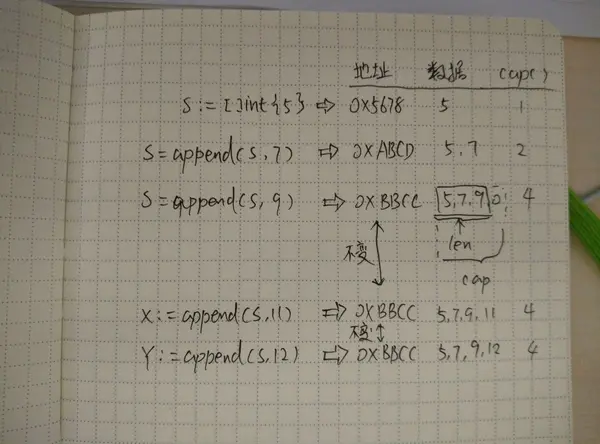 地址 数据 cap()
S := []int{5} ⇒ 0X5678 5 1
S = append(S, 7) ⇒ 0XABCD 5, 7 2
S = append(S, 9) ⇒ 0XBBCC 5, 7, 9 0 4
不变 len
cap
X := append(S, 11) ⇒ 0XBBCC 5, 7, 9, 11 4
不变
Y := append(S, 12) ⇒ 0XBBCC 5, 7, 9, 12 4